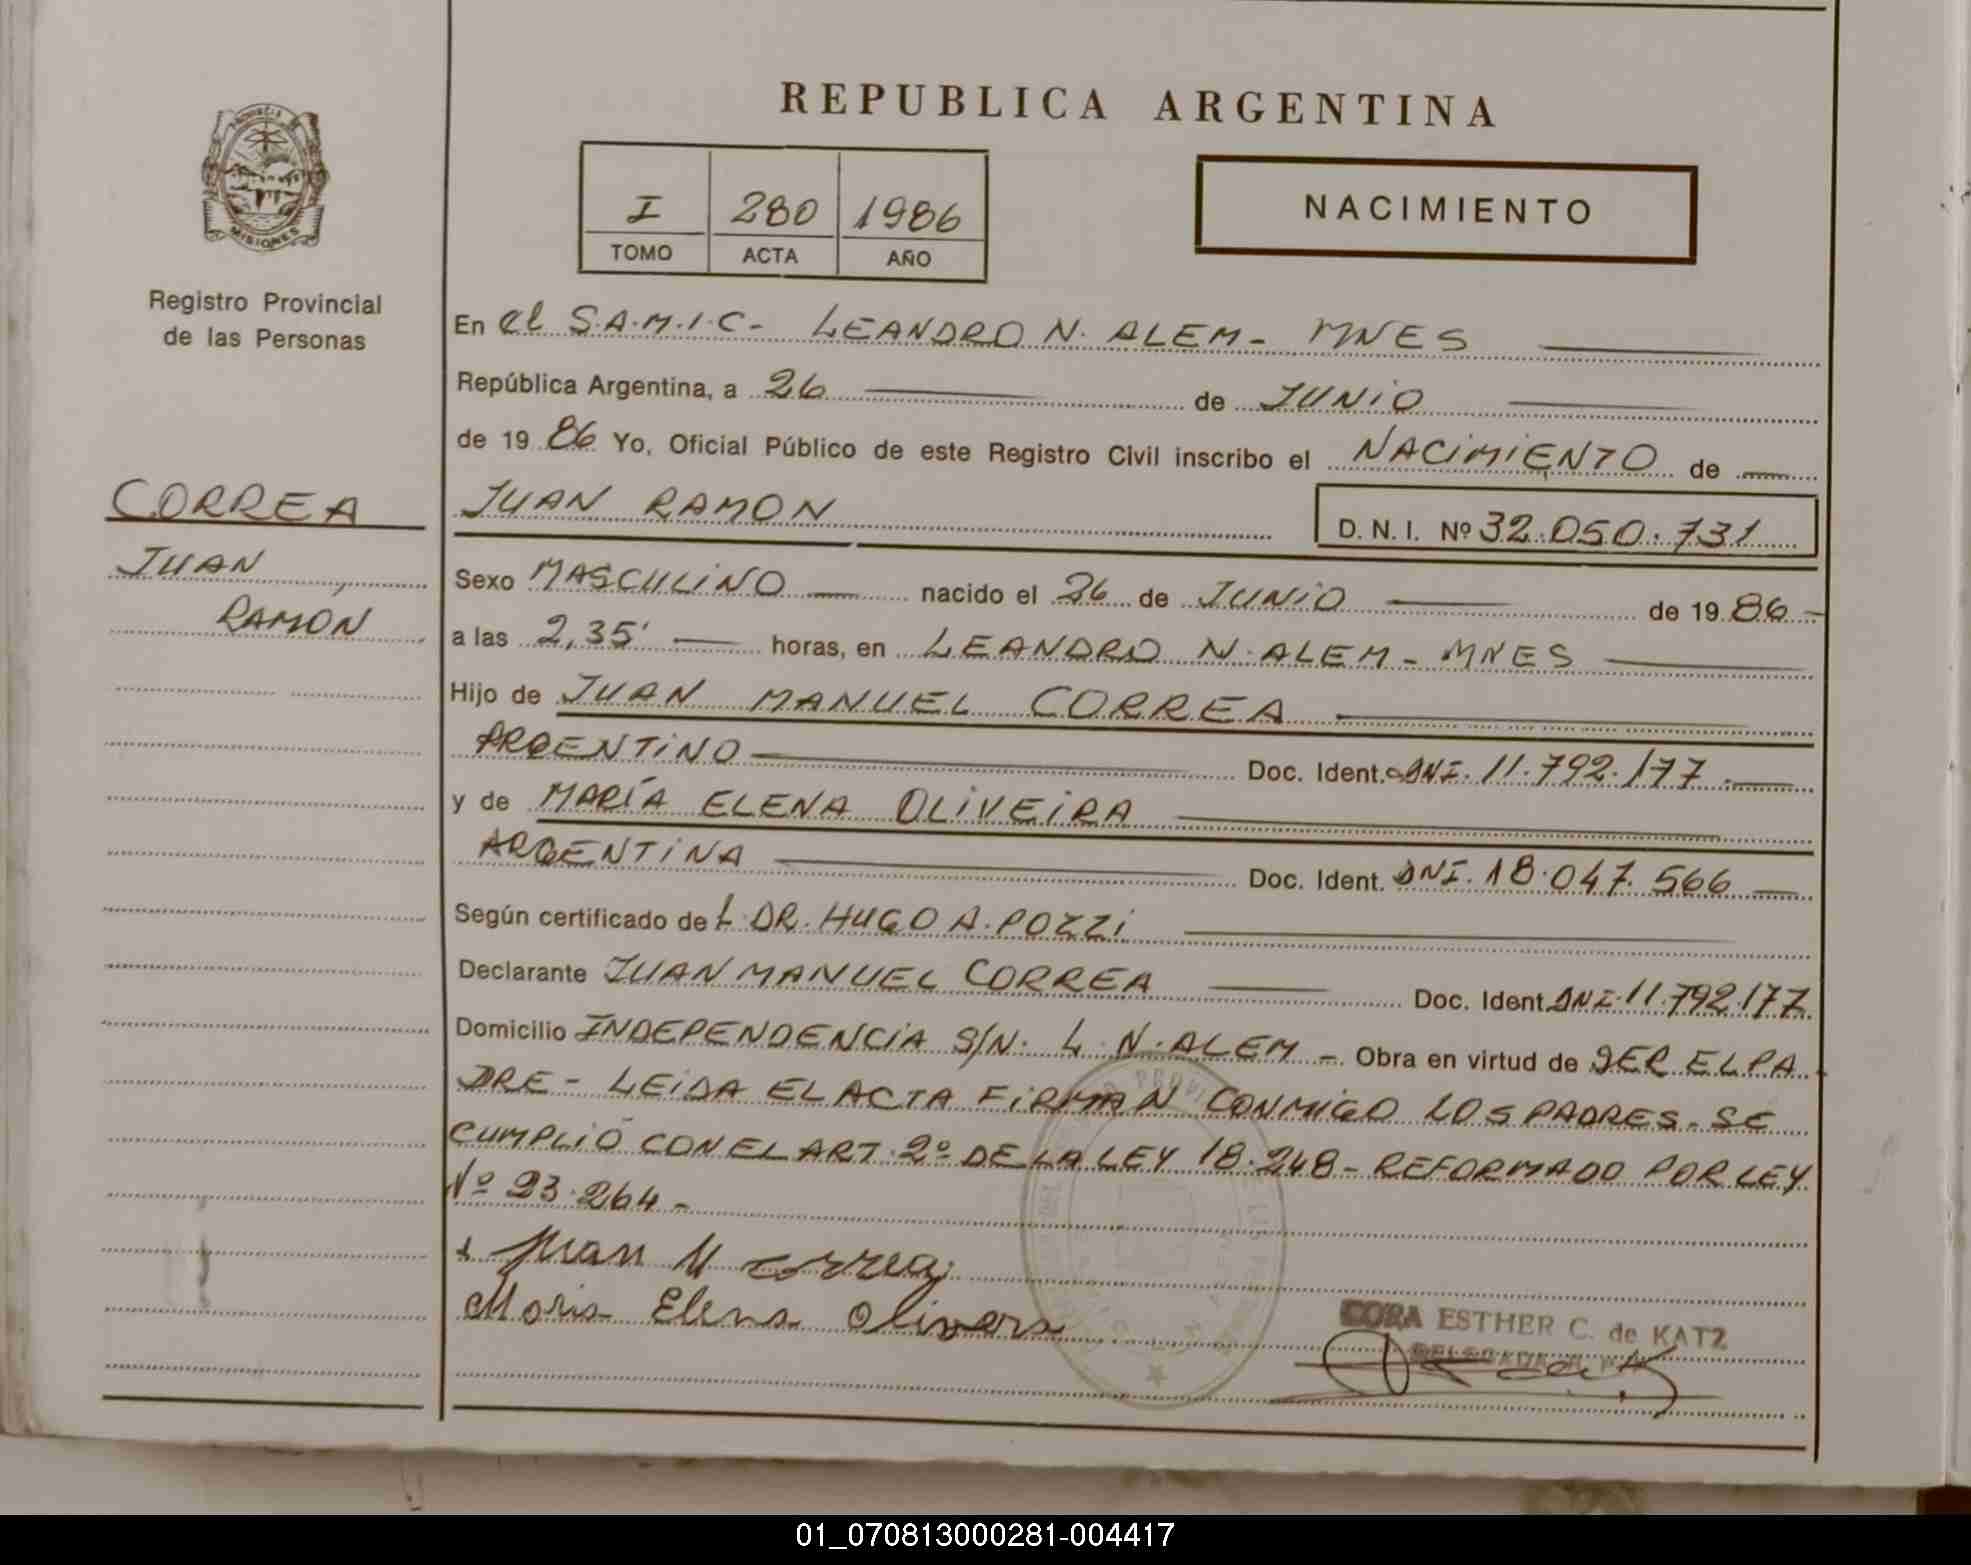 REPUBLICA ARGENTINA
PROVINCIA DE
MISIONES
Registro Provincial
de las Personas
I 280 1986
TOMO ACTA AÑO
NACIMIENTO
En el S.A.M.I.C- LEANDRO N. ALEM- MNES
República Argentina, a 26 de JUNIO
de 19 86 Yo, Oficial Público de este Registro Civil inscribo el NACIMIENTO de
CORREA
JUAN
RAMON
JUAN RAMON D. N. I. Nº 32.050.731
Sexo MASCULINO nacido el 26 de JUNIO de 19 86-
a las 2,35' horas, en LEANDRO N. ALEM- MNES
Hijo de JUAN MANUEL CORREA
ARGENTINO Doc. Ident. DNI. 11.792.177.
y de MARÍA ELENA OLIVEIRA
ARGENTINA Doc. Ident. DNI. 18.047.566
Según certificado de L DR. HUGO A. POZZI
Declarante JUAN MANUEL CORREA Doc. Ident. DNI. 11.792.177.
Domicilio INDEPENDENCIA S/N. L. N. ALEM- Obra en virtud de SER EL PA
DRE- LEIDA EL ACTA FIRMAN CONMIGO LOS PADRES- SE
CUMPLIÓ CON EL ART. 2º DE LA LEY 18.248- REFORMADO POR LEY
Nº 23.264-
Juan M Correa
Maria Elena Olivera
CORA ESTHER C. de KATZ
01_070813000281-004417